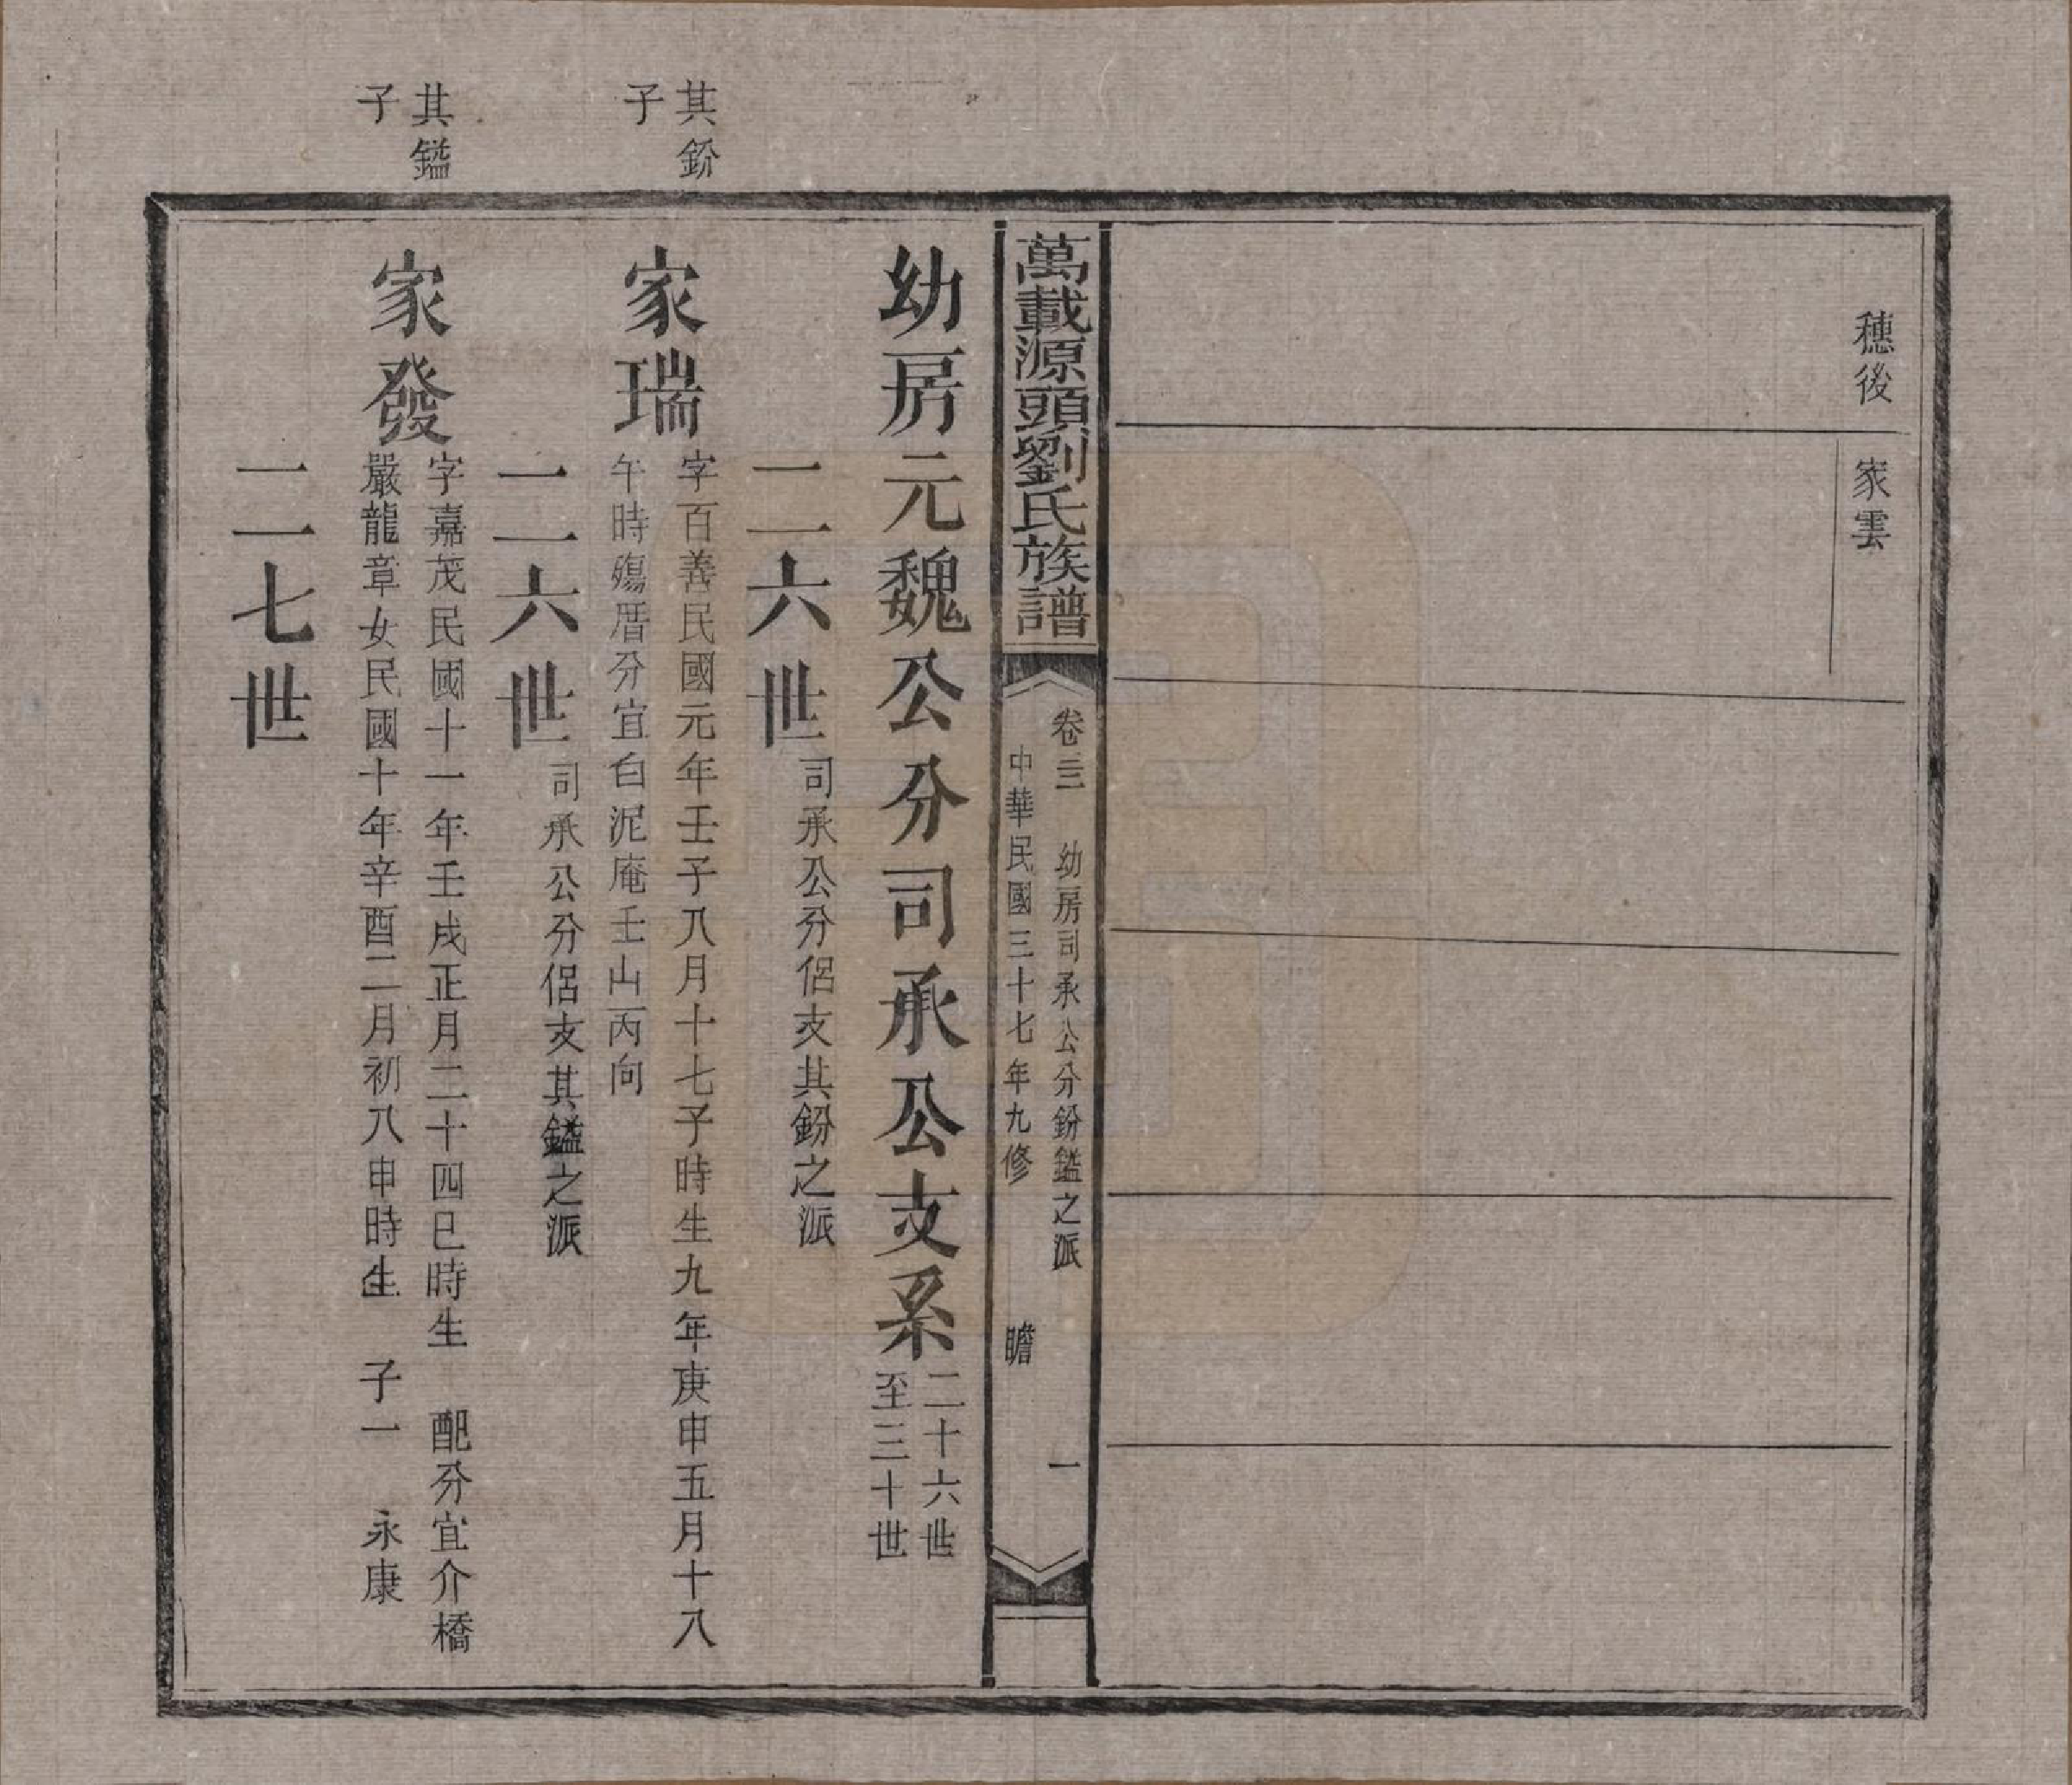 穗後
家雲
萬載源頭劉氏族譜
卷三 幼房司承公分鈖鎰之派 一
中華民國三十七年九修 瞻
幼房元魏公分司承公支系
二十六世
至三十世
二六世
司承公分侶支其鈖之派
其鈖
子
家瑞
字百善民國元年壬子八月十七子時生九年庚申五月十八
午時殤厝分宜白泥庵壬山丙向
二六世
司承公分侶支其鎰之派
其鎰
子
家發
字嘉茂民國十一年壬戌正月二十四巳時生 配分宜介橋
嚴龍章女民國十年辛酉二月初八申時生 子一 永康
二七世